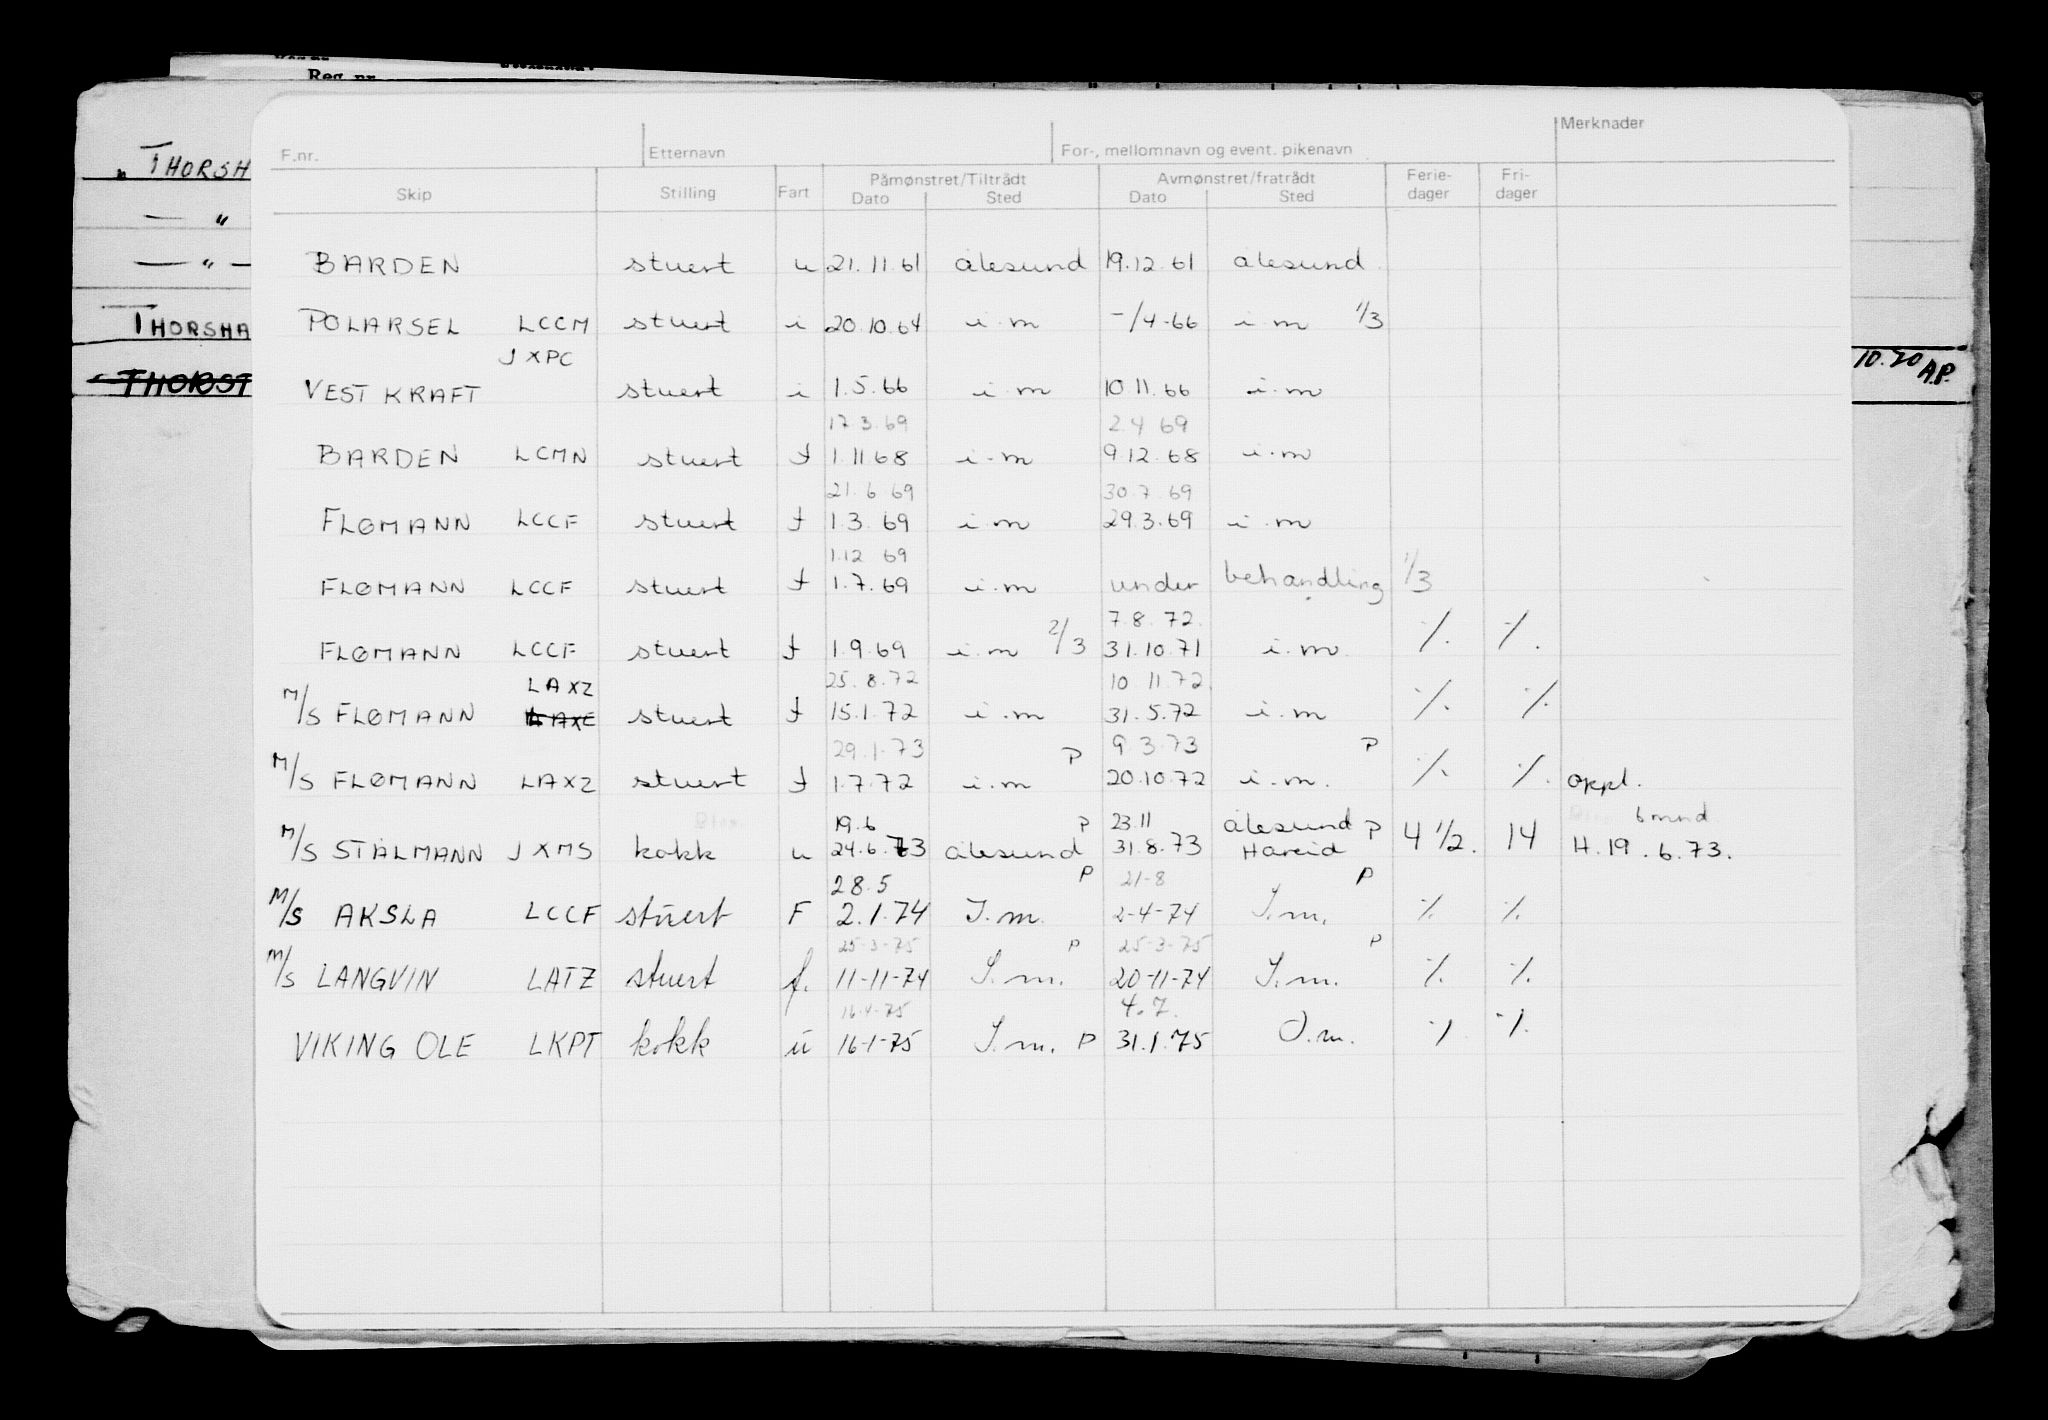 Reg. nr.
THORSH
— " 
— " —
THORSHA
THORST
10.20 A.P.
F.nr. Etternavn For-, mellomnavn og event. pikenavn Merknader
Skip Stilling Fart Påmønstret/Tiltrådt Avmønstret/fratrådt Ferie- Fri-
Dato Sted Dato Sted dager dager
BARDEN stuert u 21.11.61 ålesund 19.12.61 ålesund
POLARSEL LCCM stuert i 20.10.64 i.m -/4-66 i.m 1/3
JXPC
VEST KRAFT stuert i 1.5.66 i.m 10.11.66 i.m
17.3.69 2.4 69
BARDEN LCMN stuert f 1.11.68 i.m 9.12.68 i.m
21.6 69 30.7.69
FLØMANN LCCF stuert f 1.3.69 i.m 29.3.69 i.m
1.12 69
FLØMANN LCCF stuert f 1.7.69 i.m under behandling 1/3
7.8.72.
FLØMANN LCCF stuert f 1.9.69 i.m 2/3 31.10.71 i.m. ·/. ·/.
LAXZ 25.8.72 10.11.72.
M/S FLØMANN LAXE stuert f 15.1.72 i.m 31.5.72 i.m ·/. ·/.
29.1.73 P 9 3.73 P
M/S FLØMANN LAXZ stuert f 1.7.72 i.m 20.10.72 i.m. ·/. ·/. oppl.
19.6 P 23.11 ålesund P 6 mnd
M/S STÅLMANN JXMS kokk u 24.6.73 ålesund 31.8.73 Hareid 4 1/2. 14 H.19.6.73.
28.5 P 21-8 P
M/S AKSLA LCCF stuert F 2.1.74 I.m. 2-4-74 I.m. ·/. ·/.
25-3-75 P 25-3-75 P
M/S LANGVIN LATZ stuert f. 11-11-74 I.m. 20-11-74 I.m. ·/. ·/.
16-4-75 4.7.
VIKING OLE LKPT kokk u 16-1-75 I.m. P 31.1.75 I.m. ·/. ·/.